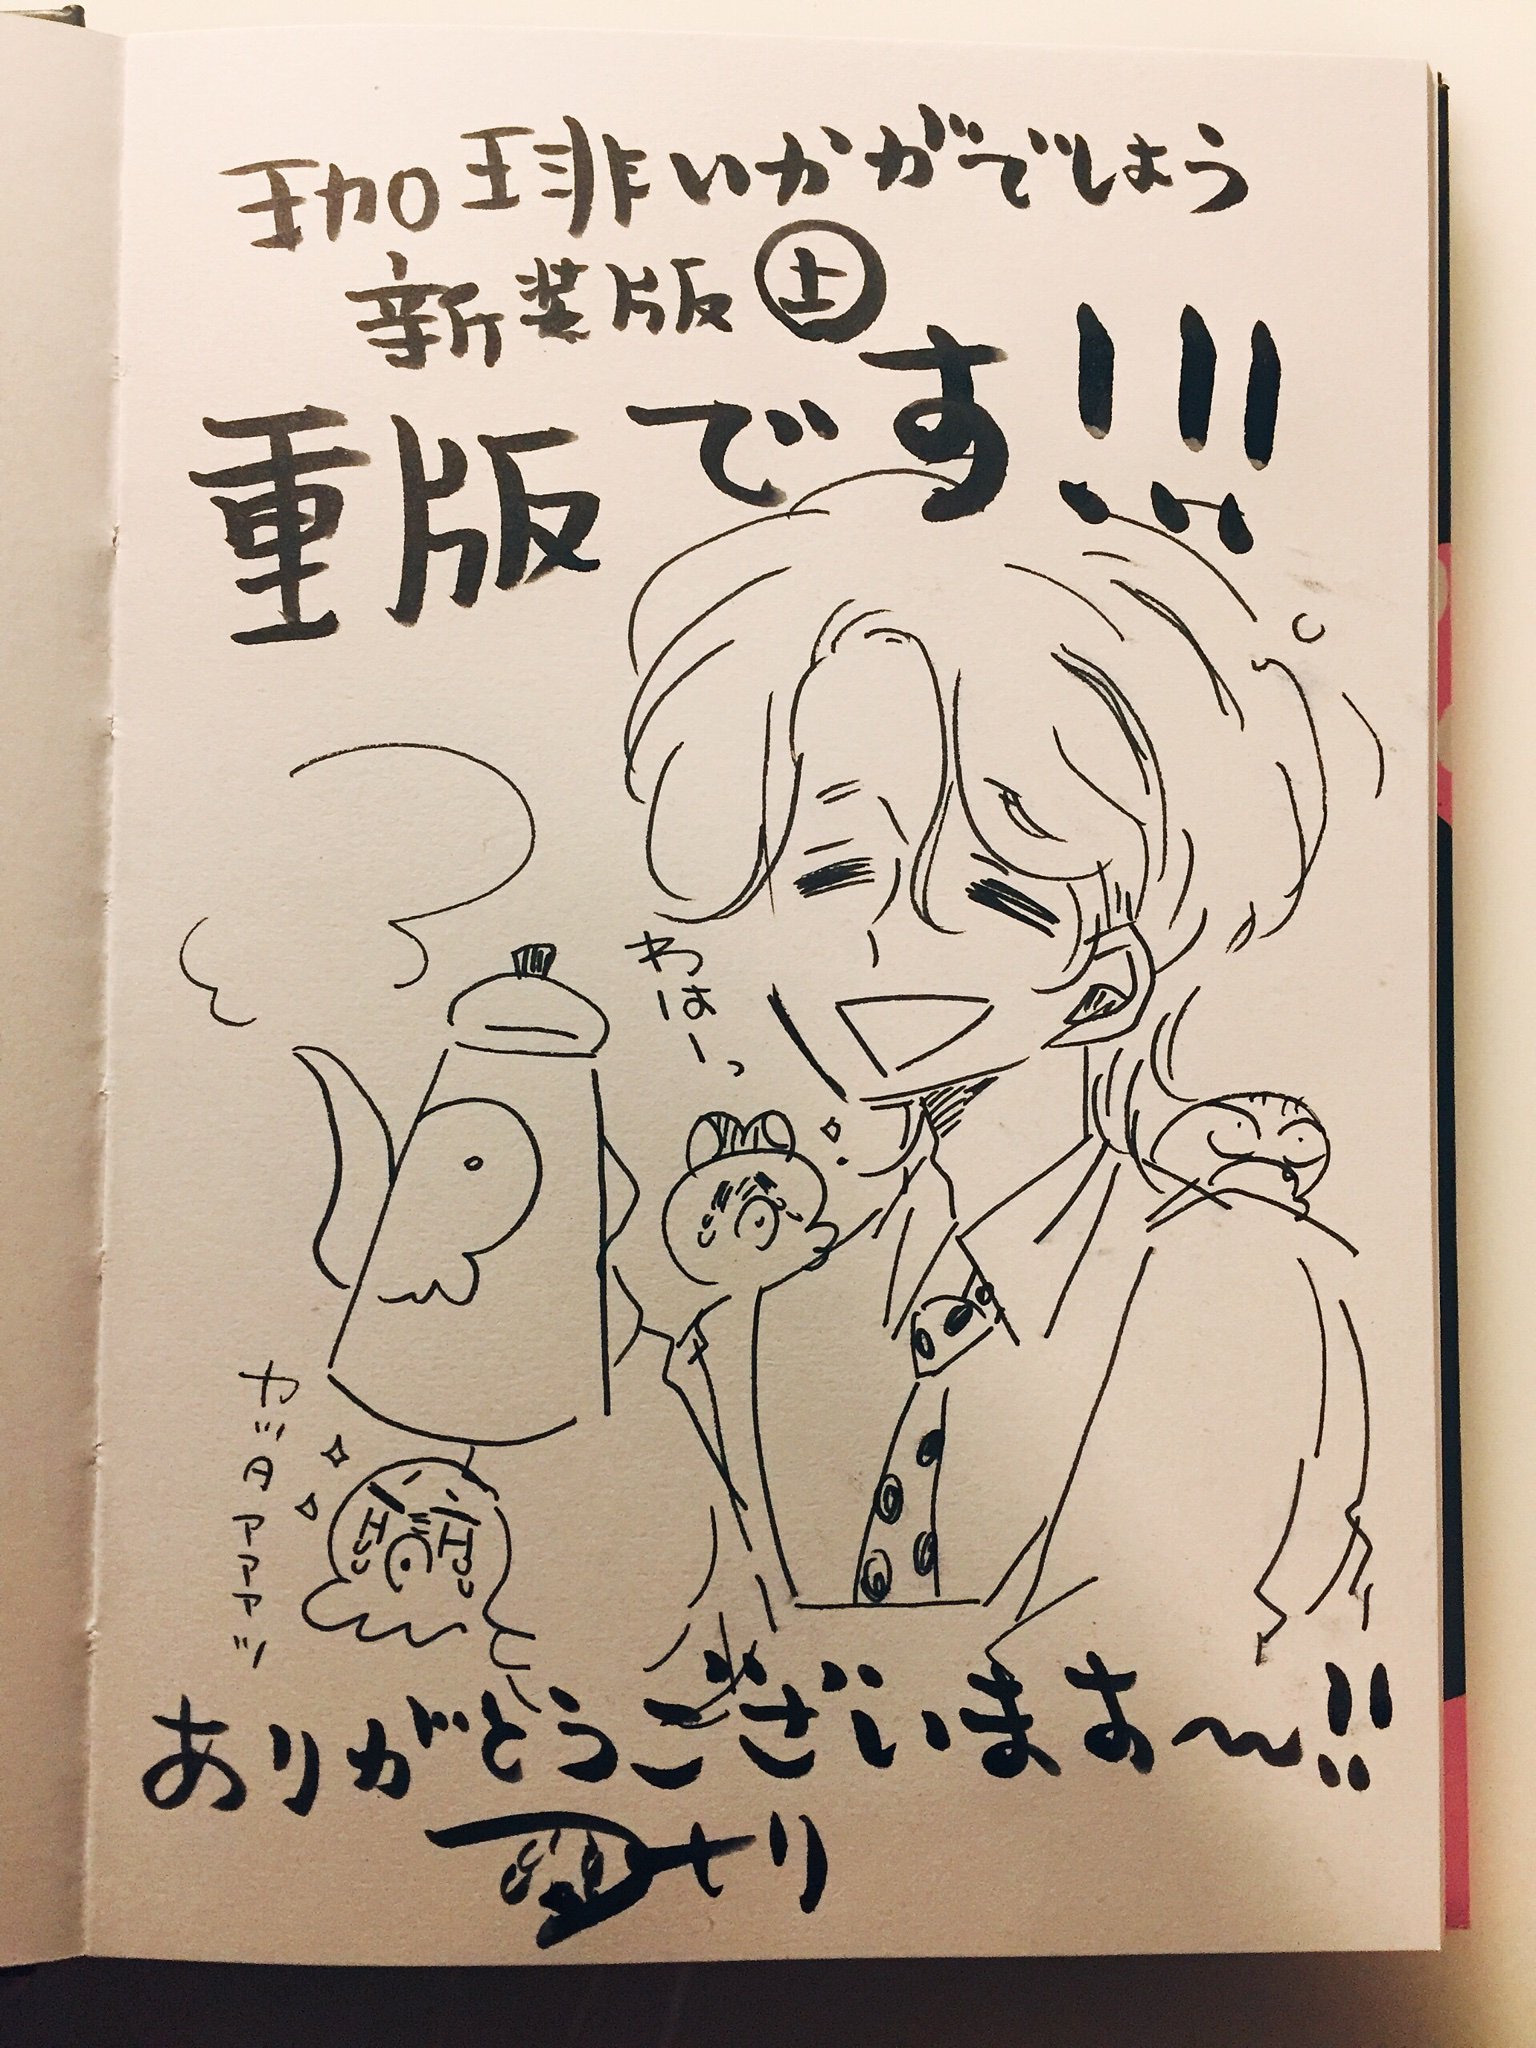 珈琲いかがでしょう
新装版上
重版です!!!
わはーっ
カッタァァァッ
ありがとうございます〜!!
ナリ